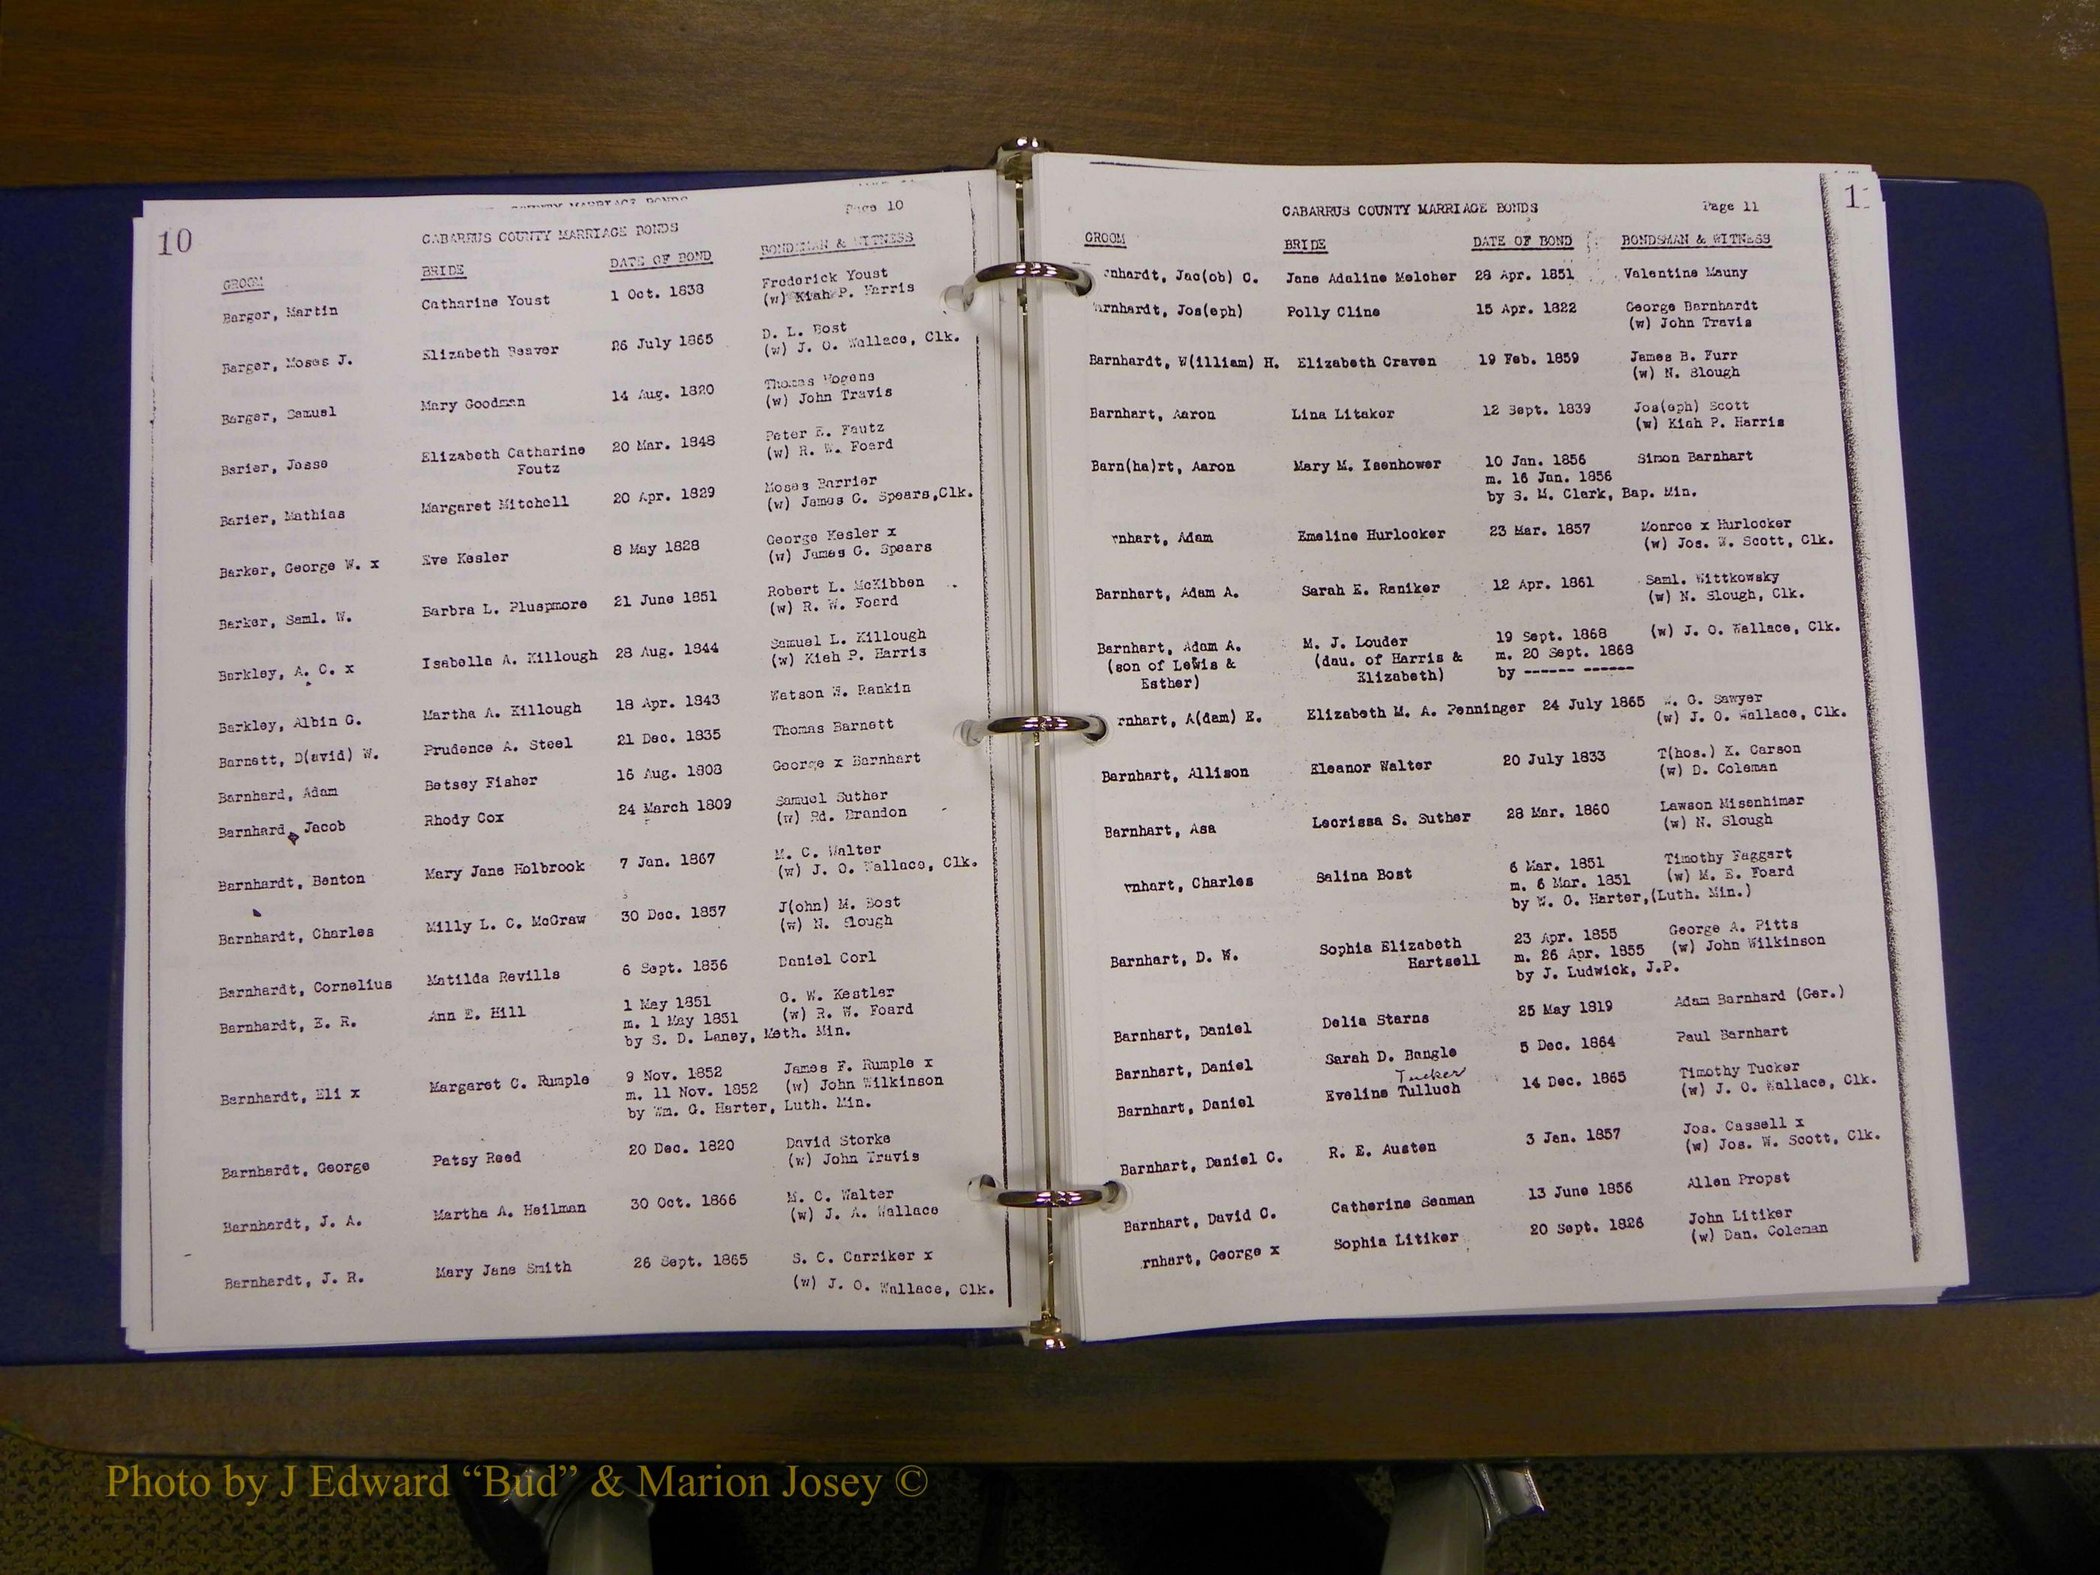 10
Page 10
CABARRUS COUNTY MARRIAGE BONDS
GROOM BRIDE DATE OF BOND BONDSMAN & WITNESS
Barger, Martin Catharine Youst 1 Oct. 1838 Frederick Youst
(w) Kiah P. Harris
Barger, Moses J. Elizabeth Beaver 26 July 1865 D. L. Bost
(w) J. O. Wallace, Clk.
Barger, Samuel Mary Goodman 14 Aug. 1820 Thomas
(w) John Travis
Barier, Jesse Elizabeth Catharine 20 Mar. 1848 Peter E. Fautz
Foutz (w) R. W. Foard
Barier, Mathias Margaret Mitchell 20 Apr. 1829 Moses Barrier
(w) James G. Spears, Clk.
Barker, George W. x Eve Kesler 8 May 1828 George Kesler x
(w) James G. Spears
Barker, Saml. W. Barbra L. Pluspmore 21 June 1851 Robert L. McKibben
(w) R. W. Foard
Barkley, A. C. x Isabella A. Killough 28 Aug. 1844 Samuel L. Killough
(w) Kiah P. Harris
Barkley, Albin C. Martha A. Killough 18 Apr. 1843 Watson W. Rankin
Barnett, D(avid) W. Prudence A. Steel 21 Dec. 1835 Thomas Barnett
Barnhard, Adam Betsey Fisher 16 Aug. 1808 George x Barnhart
Barnhard, Jacob Rhody Cox 24 March 1809 Samuel Suther
(w) Brandon
Barnhardt, Benton Mary Jane Holbrook 7 Jan. 1867 M. C. Walter
(w) J. O. Wallace, Clk.
Barnhardt, Charles Milly L. C. McGraw 30 Dec. 1857 J(ohn) M. Bost
(w) N. Slough
Barnhardt, Cornelius Matilda Revills 6 Sept. 1856 Daniel Corl
Barnhardt, E. R. Ann E. Hill 1 May 1851 G. W. Kestler
m. 1 May 1851 (w) R. W. Foard
by S. D. Laney, Meth. Min.
Barnhardt, Eli x Margaret C. Rumple 9 Nov. 1852 James F. Rumple x
m. 11 Nov. 1852 (w) John Wilkinson
by Wm. G. Harter, Luth. Min.
Barnhardt, George Patsy Reed 20 Dec. 1820 David Storke
(w) John Travis
Barnhardt, J. A. Martha A. Heilman 30 Oct. 1866 M. C. Walter
(w) J. A. Wallace
Barnhardt, J. R. Mary Jane Smith 26 Sept. 1865 S. C. Carriker x
(w) J. O. Wallace, Clk.
CABARRUS COUNTY MARRIAGE BONDS Page 11
GROOM BRIDE DATE OF BOND BONDSMAN & WITNESS
rnhardt, Jac(ob) C. Jane Adaline Melcher 28 Apr. 1851 Valentine Mauny
arnhardt, Jos(eph) Polly Cline 15 Apr. 1822 George Barnhardt
(w) John Travis
Barnhardt, W(illiam) H. Elizabeth Craven 19 Feb. 1859 James B. Furr
(w) N. Slough
Barnhart, Aaron Lina Litaker 12 Sept. 1839 Jos(eph) Scott
(w) Kiah P. Harris
Barn(ha)rt, Aaron Mary M. Isenhower 10 Jan. 1856 Simon Barnhart
m. 16 Jan. 1856
by S. M. Clark, Bap. Min.
rnhart, Adam Emeline Hurlocker 23 Mar. 1857 Monroe x Hurlocker
(w) Jos. W. Scott, Clk.
Barnhart, Adam A. Sarah E. Raniker 12 Apr. 1861 Saml. Wittkowsky
(w) N. Slough, Clk.
Barnhart, Adam A. M. J. Louder 19 Sept. 1868 (w) J. O. Wallace, Clk.
(son of Lewis & (dau. of Harris & m. 20 Sept. 1868
Esther) Elizabeth) by ------ ------
rnhart, A(dam) E. Elizabeth M. A. Penninger 24 July 1865 W. G. Sawyer
(w) J. O. Wallace, Clk.
Barnhart, Allison Eleanor Walter 20 July 1833 T(hos.) K. Carson
(w) D. Coleman
Barnhart, Asa Lecrissa S. Suther 28 Mar. 1860 Lawson Misenhimer
(w) N. Slough
rnhart, Charles Salina Bost 6 Mar. 1851 Timothy Faggart
m. 6 Mar. 1851 (w) M. E. Foard
by W. G. Harter,(Luth. Min.)
Barnhart, D. W. Sophia Elizabeth 23 Apr. 1855 George A. Pitts
Hartsell m. 26 Apr. 1855 (w) John Wilkinson
by J. Ludwick, J.P.
Barnhart, Daniel Delia Starns 25 May 1819 Adam Barnhard (Ger.)
Barnhart, Daniel Sarah D. Bangle 5 Dec. 1864 Paul Barnhart
Tucker
Barnhart, Daniel Eveline Tulluch 14 Dec. 1865 Timothy Tucker
(w) J. O. Wallace, Clk.
Barnhart, Daniel C. R. E. Austen 3 Jan. 1857 Jos. Cassell x
(w) Jos. W. Scott, Clk.
Barnhart, David C. Catherine Seaman 13 June 1856 Allen Propst
rnhart, George x Sophia Litiker 20 Sept. 1826 John Litiker
(w) Dan. Coleman
Photo by J Edward “Bud” & Marion Josey ©